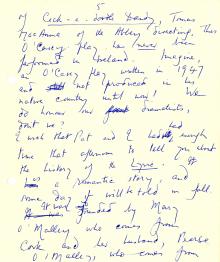 5
of Cock-a-doodle Dandy, Tomas
MacAnna of the Abbey directing. This
O'Casey play has never been
performed in Ireland. Imagine,
an O'Casey play written in 1947
and not produced in his
native country until now! We
do honour our dramatists,
don't we?
I wish that Pat and I had had enough
time that afternoon to tell you about
the history of the Lyric. It
has a romantic story, and
some day it will be told in full.
It was founded by Mary
O'Malley who comes from
Cork and her husband, Pearse
O'Malley, who comes from